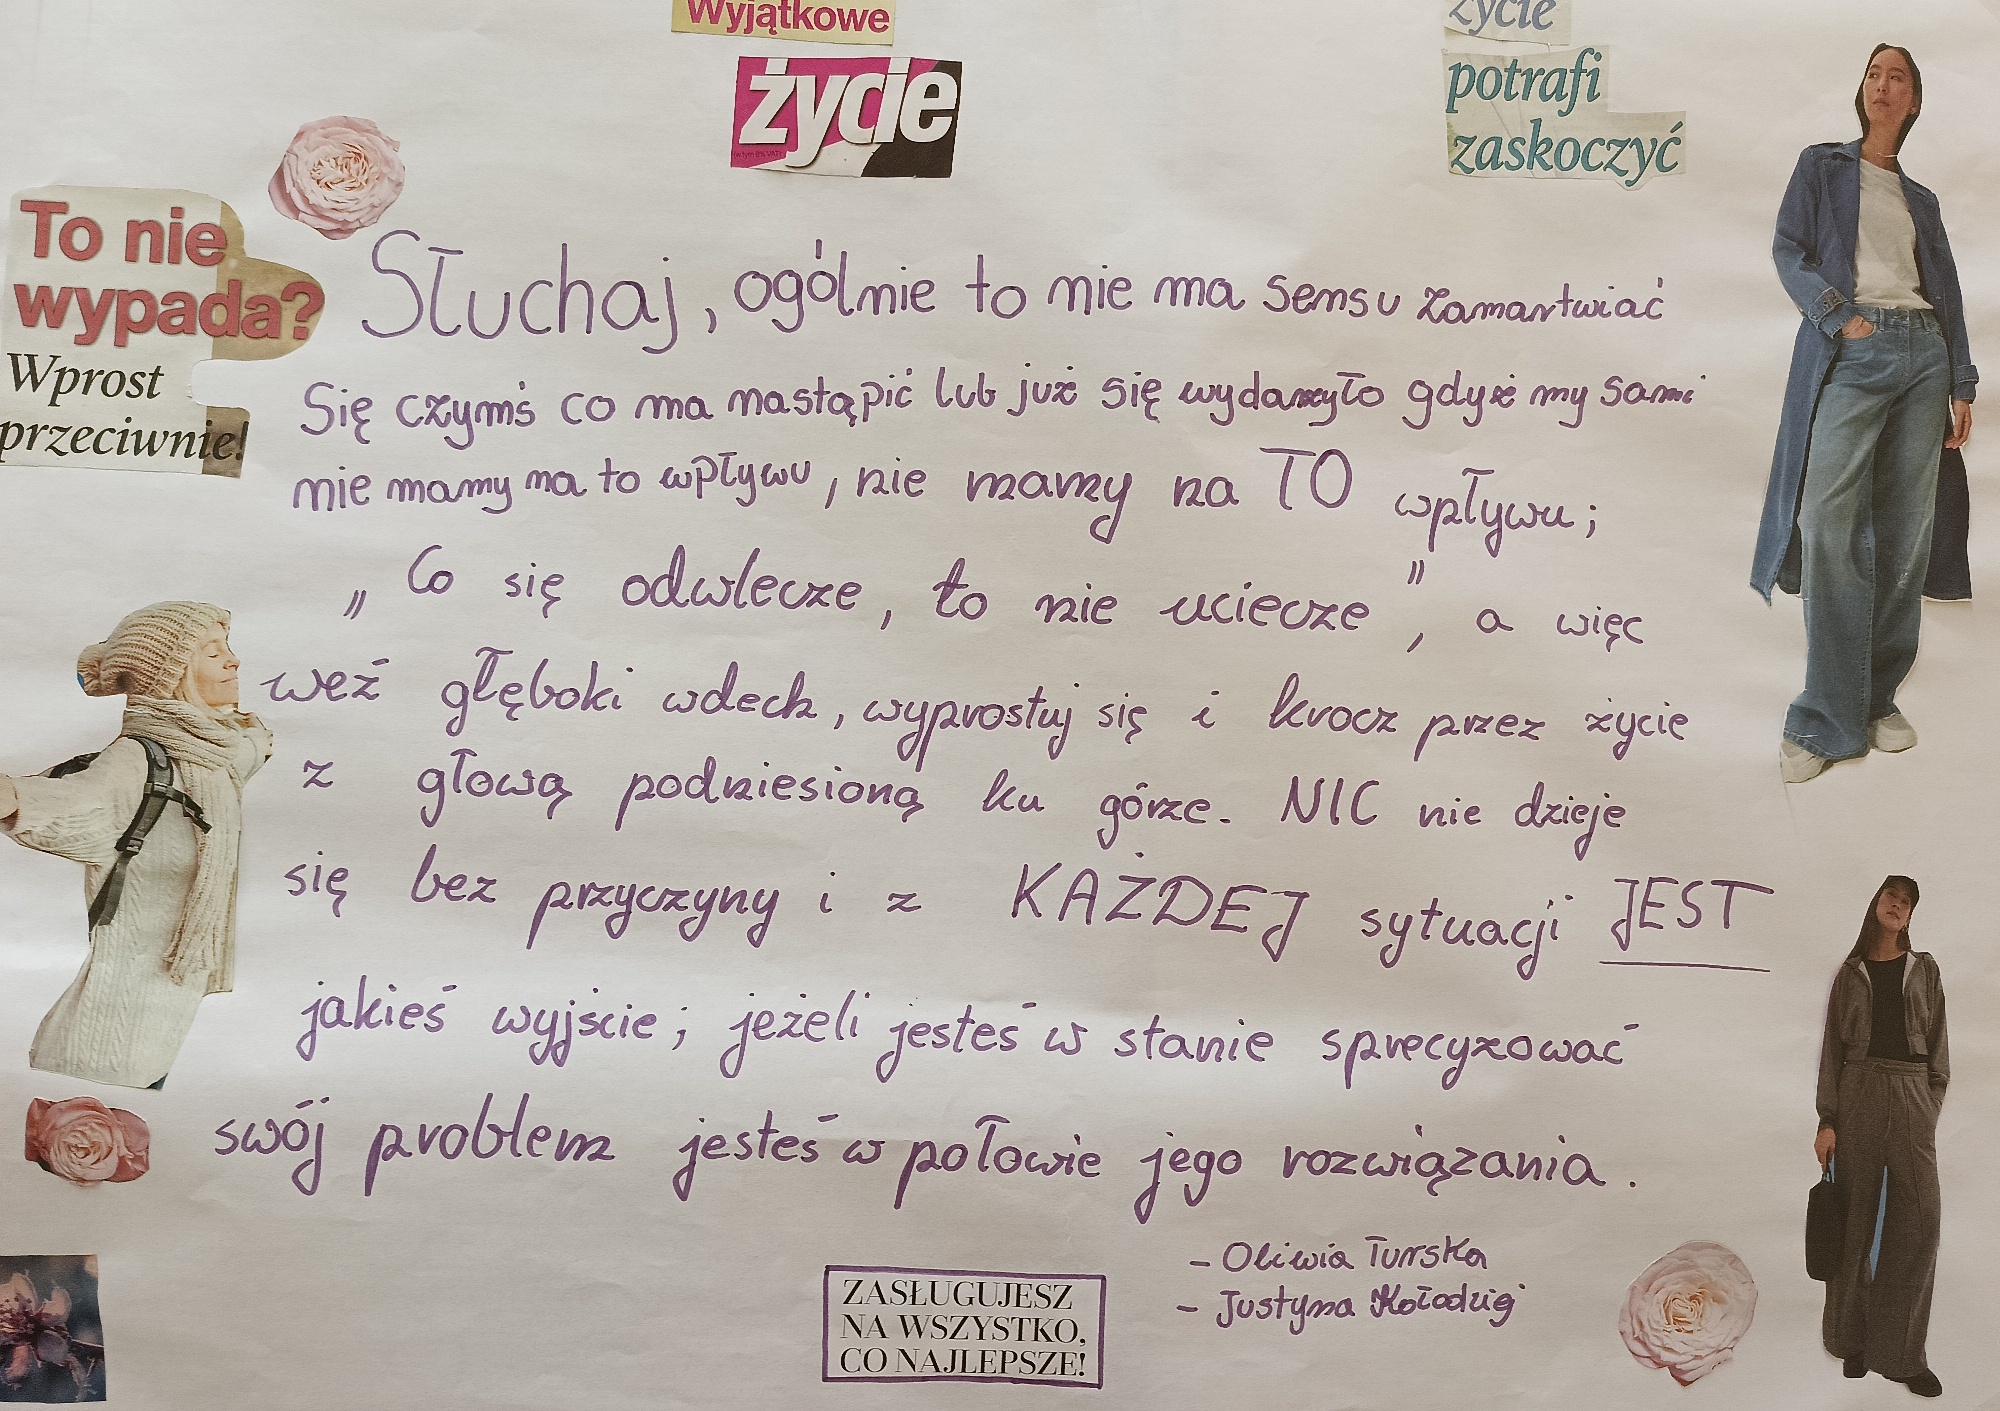 Wyjątkowe
życie
życie
potrafi
zaskoczyć
To nie
wypada?
Wprost
przeciwnie!
Słuchaj, ogólnie to nie ma sensu zamartwiać
się czymś co ma nastąpić lub już się wydarzyło gdyż my sami
nie mamy na to wpływu, nie mamy na TO wpływu;
„Co się odwlecze, to nie uciecze”, a więc
weź głęboki wdech, wyprostuj się i krocz przez życie
z głową podniesioną ku górze. NIC nie dzieje
się bez przyczyny i z KAŻDEJ sytuacji JEST
jakieś wyjście; jeżeli jesteś w stanie sprecyzować
swój problem jesteś w połowie jego rozwiązania.
- Oliwia Turska
- Justyna Kołodziej
ZASŁUGUJESZ
NA WSZYSTKO,
CO NAJLEPSZE!